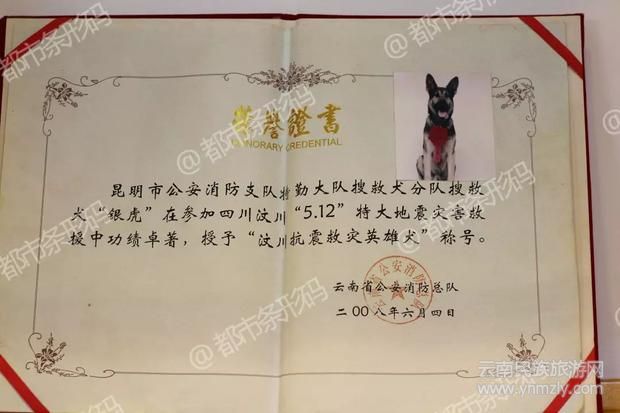 榮譽證書
HONORARY CREDENTIAL
昆明市公安消防支队特勤大队搜救犬分队搜救
犬“银虎”在参加四川汶川“5.12”特大地震灾害救
援中功绩卓著，授予“汶川抗震救灾英雄犬”称号。
云南省公安消防总队
二〇〇八年六月四日
云南省公安消防总队
@都市条形码
@都市条形码
@都市条形码
@都市条形码
@都市条形码
@都市条形码
云南民族旅游网
www.ynmzly.com